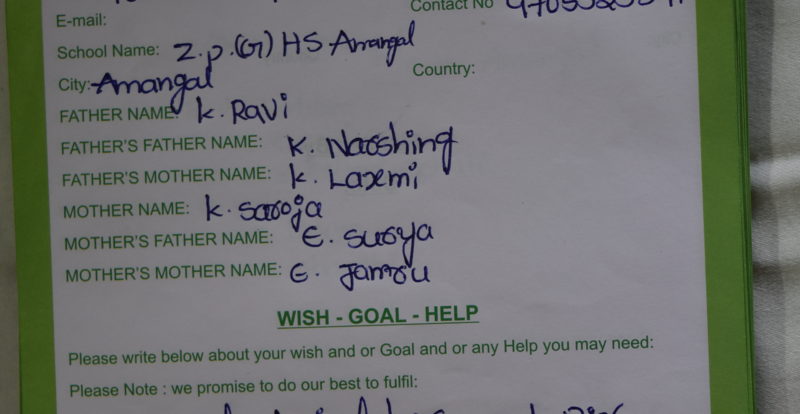 Contact No
E-mail:
School Name: Z.p.(G) HS Amangal
City: Amangal Country:
FATHER NAME: K. Ravi
FATHER'S FATHER NAME: K. Narshing
FATHER'S MOTHER NAME: K. Laxmi
MOTHER NAME: K. Saroja
MOTHER'S FATHER NAME: E. Surya
MOTHER'S MOTHER NAME: E.
WISH - GOAL - HELP
Please write below about your wish and or Goal and or any Help you may need:
Please Note : we promise to do our best to fulfil: